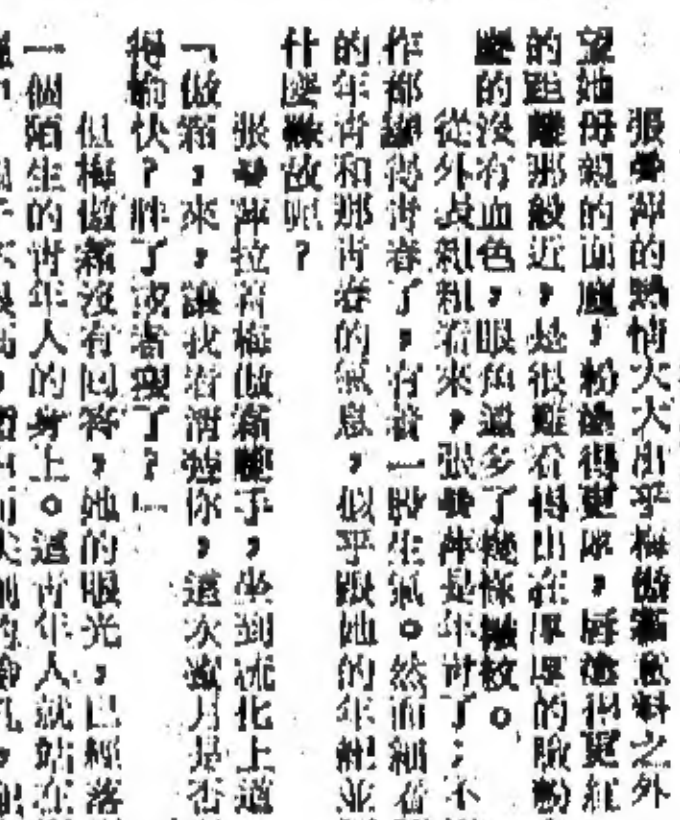 張夢萍的熱情大大出乎梅傲霜意料之外
望她母親的面龐,粉搽得更厚,唇塗得更紅
的距離那般近,是很難看得出在厚厚的脂粉
的沒有血色,眼角還多了幾條皺紋。
從外表粗粗看來,張夢萍是年青了;不
作都顯得青春了,有着一股生氣。然而細看
的年青和那青春的氣息,似乎跟她的年紀並
什麼緣故呢?
張夢萍拉着梅傲霜雙手,坐到沙化上道
「傲霜,來,讓我看清楚你,這次蜜月是否
得愉快?胖了或者瘦了?」
但梅傲霜沒有回答,她的眼光,已經落
一個陌生的青年人的身上。這青年人就站在